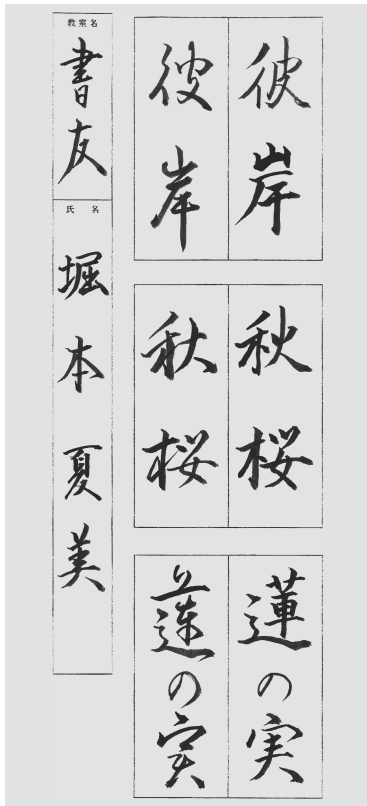 彼岸
彼岸
秋桜
秋桜
蓮の実
蓮の実
教室名
書友
氏名
堀本夏美